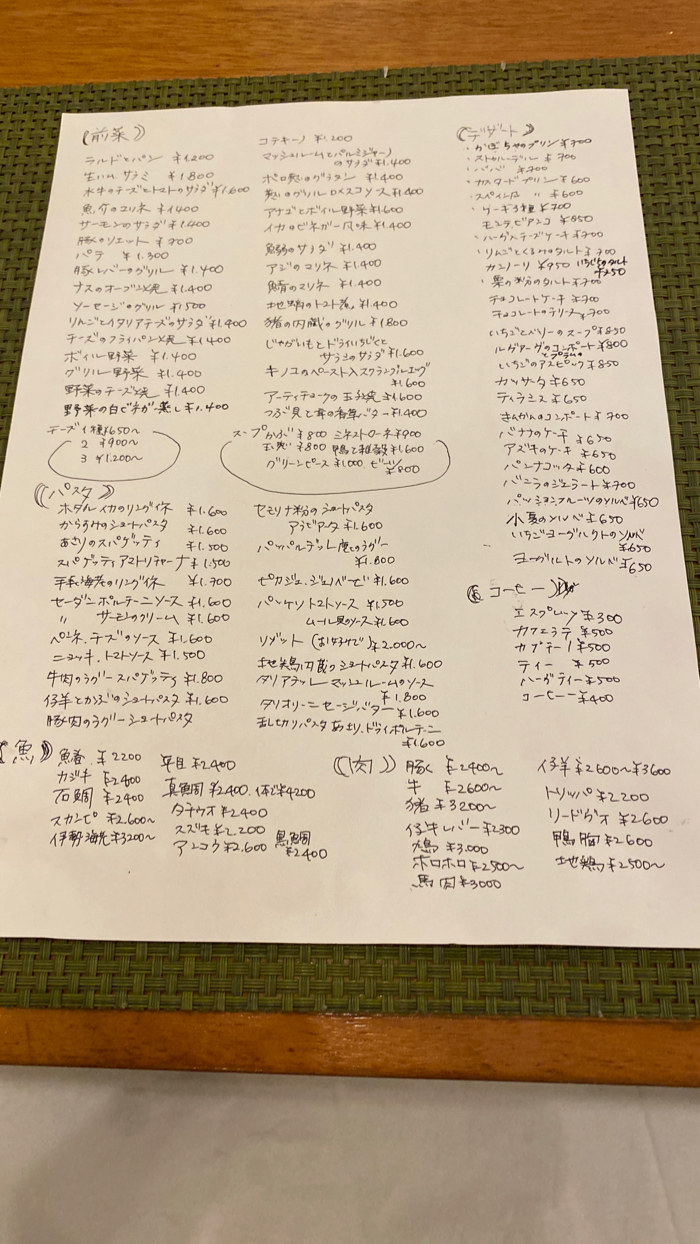 前菜
ラルドとパン ¥1.200
生ハム サラミ ¥1.800
水牛のチーズとトマトのサラダ ¥1.600
魚介のマリネ ¥1.400
サーモンのサラダ ¥1.400
豚のリエット ¥700
パテ ¥1.300
豚レバーのグリル ¥1.400
ナスのオーブン焼 ¥1.400
ソーセージのグリル ¥1.500
りんごとイタリアチーズのサラダ ¥1.400
チーズのフライパン焼 ¥1.400
ボイル野菜 ¥1.400
グリル野菜 ¥1.400
野菜のチーズ焼 ¥1.400
野菜の白ビネガー蒸し ¥1.400
チーズ1種 ¥650〜
2 ¥900〜
3 ¥1.200〜
コテキーノ ¥1.200
マッシュルームとパルミジャーノ
のサラダ ¥1.400
ポロ葱のグラタン ¥1.400
葱のグリル ロメスコソース ¥1.400
アナゴとボイル野菜 ¥1.600
イカのビネガー風味 ¥1.400
魚卵のサラダ ¥1.400
アジのマリネ ¥1.400
鯖のマリネ ¥1.400
地蛸のトマト煮 ¥1.400
猪の内臓のグリル ¥1.800
じゃがいもとドライいちじくと
サラミのサラダ ¥1.600
キノコのペースト入スクランブルエッグ
¥1.600
アーティチョークの玉子焼 ¥1.600
つぶ貝と茸の香草バター ¥1.400
スープ かぶ ¥800 ミネストローネ ¥900
玉葱 ¥800 鴨と雑穀 ¥1.600
グリーンピース ¥1.000 ビーツ
¥800
デザート
・かぼちゃのプリン ¥700
・ストゥルーデル ¥700
・ババ ¥700
・カスタードプリン ¥600
・スペイン風 〃 ¥600
・ケーキ3種 ¥700
モンテ.ビアンコ ¥850
・ハーブスチーズケーキ ¥700
・りんごとくるみのタルト ¥700
カンノーリ ¥950 いちじくのタルト
¥850
・栗の粉のタルト ¥700
チョコレートケーキ ¥700
チョコレートのテリーヌ ¥700
いちごとベリーのスープ ¥850
ルヴァーヴのコンポート ¥800
とプラムの
いちごのアスピック ¥850
カッサータ ¥650
ティラミス ¥650
きんかんのコンポート ¥700
バナナのケーキ ¥650
アズキのケーキ ¥650
パンナコッタ ¥600
バニラのジェラート ¥700
パッションフルーツのソルベ ¥650
小夏のソルベ ¥650
いちごヨーグルトのソルベ
¥650
ヨーグルトのソルベ ¥650
パスタ
ホタルイカのリングイネ ¥1.600
からすみのショートパスタ ¥1.600
あさりのスパゲッティ ¥1.500
スパゲッティアマトリチャーナ ¥1.500
手長海老のリングイネ ¥1.700
セーダニ ポルチーニソース ¥1.600
〃 サーモンのクリーム ¥1.600
ペンネ.チーズのソース ¥1.600
ニョッキ.トマトソース ¥1.500
牛肉のラグースパゲッティ ¥1.800
仔羊とかぶのショートパスタ ¥1.600
豚肉のラグーショートパスタ
セモリナ粉のショートパスタ
アラビアータ ¥1.600
パッパルデッレ 鹿のラグー
¥1.800
ピカジェ.ジェノベーゼ ¥1.600
パンケソ トマトソース ¥1.500
ムール貝のソース ¥1.600
リゾット (お好みで) ¥2.000〜
地鶏内臓のショートパスタ ¥1.600
タリアテッレ マッシュルームのソース
¥1.800
タリオリーニ セージバター ¥1.600
乱切りパスタ あさり.ドライポルチーニ
¥1.600
コーヒー
エスプレッソ ¥300
カフェラテ ¥500
カプチーノ ¥500
ティー ¥500
ハーブティー ¥500
コーヒー ¥400
魚
魚介 ¥2200
カジキ ¥2400
石鯛 ¥2400
スカンピ ¥2.600〜
伊勢海老 ¥3200〜
平目 ¥2400
真魚鯛 ¥2400. 1体で ¥4200
タチウオ ¥2400
スズキ ¥2.200
アンコウ ¥2.600 黒魚鯛
¥2400
肉
豚 ¥2400〜
牛 ¥2600〜
猪 ¥3200〜
仔牛レバー ¥2300
鳩 ¥3.000
ホロホロ ¥2500〜
馬肉 ¥3000
仔羊 ¥2600〜¥3600
トリッパ ¥2200
リードヴォ ¥2.600
鴨胸 ¥2600
地鶏 ¥2500〜